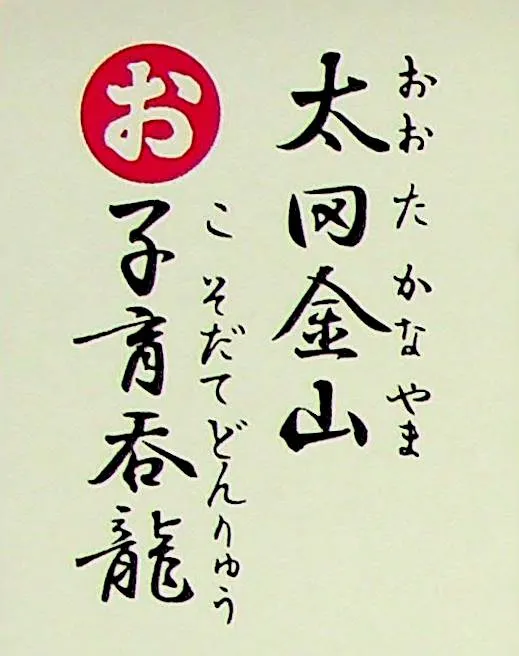 太田金山
おおたかなやま
お
子育呑龍
こそだてどんりゅう